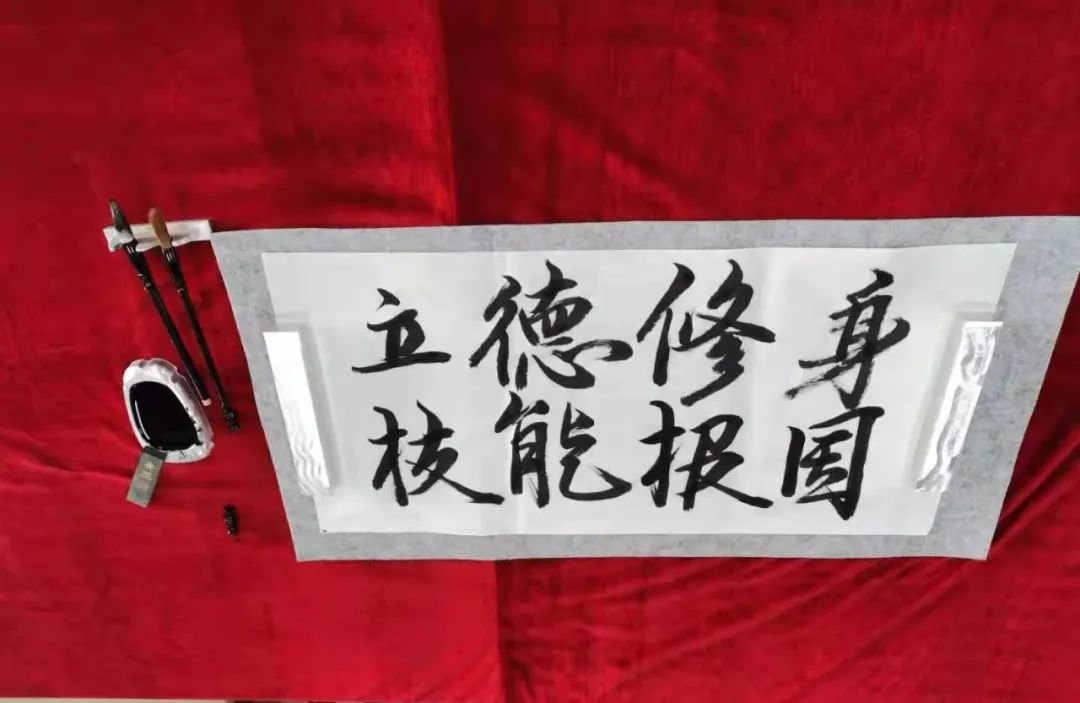 立德修身
技能报国